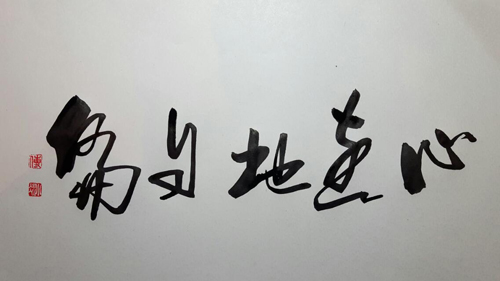 心遠地自偏